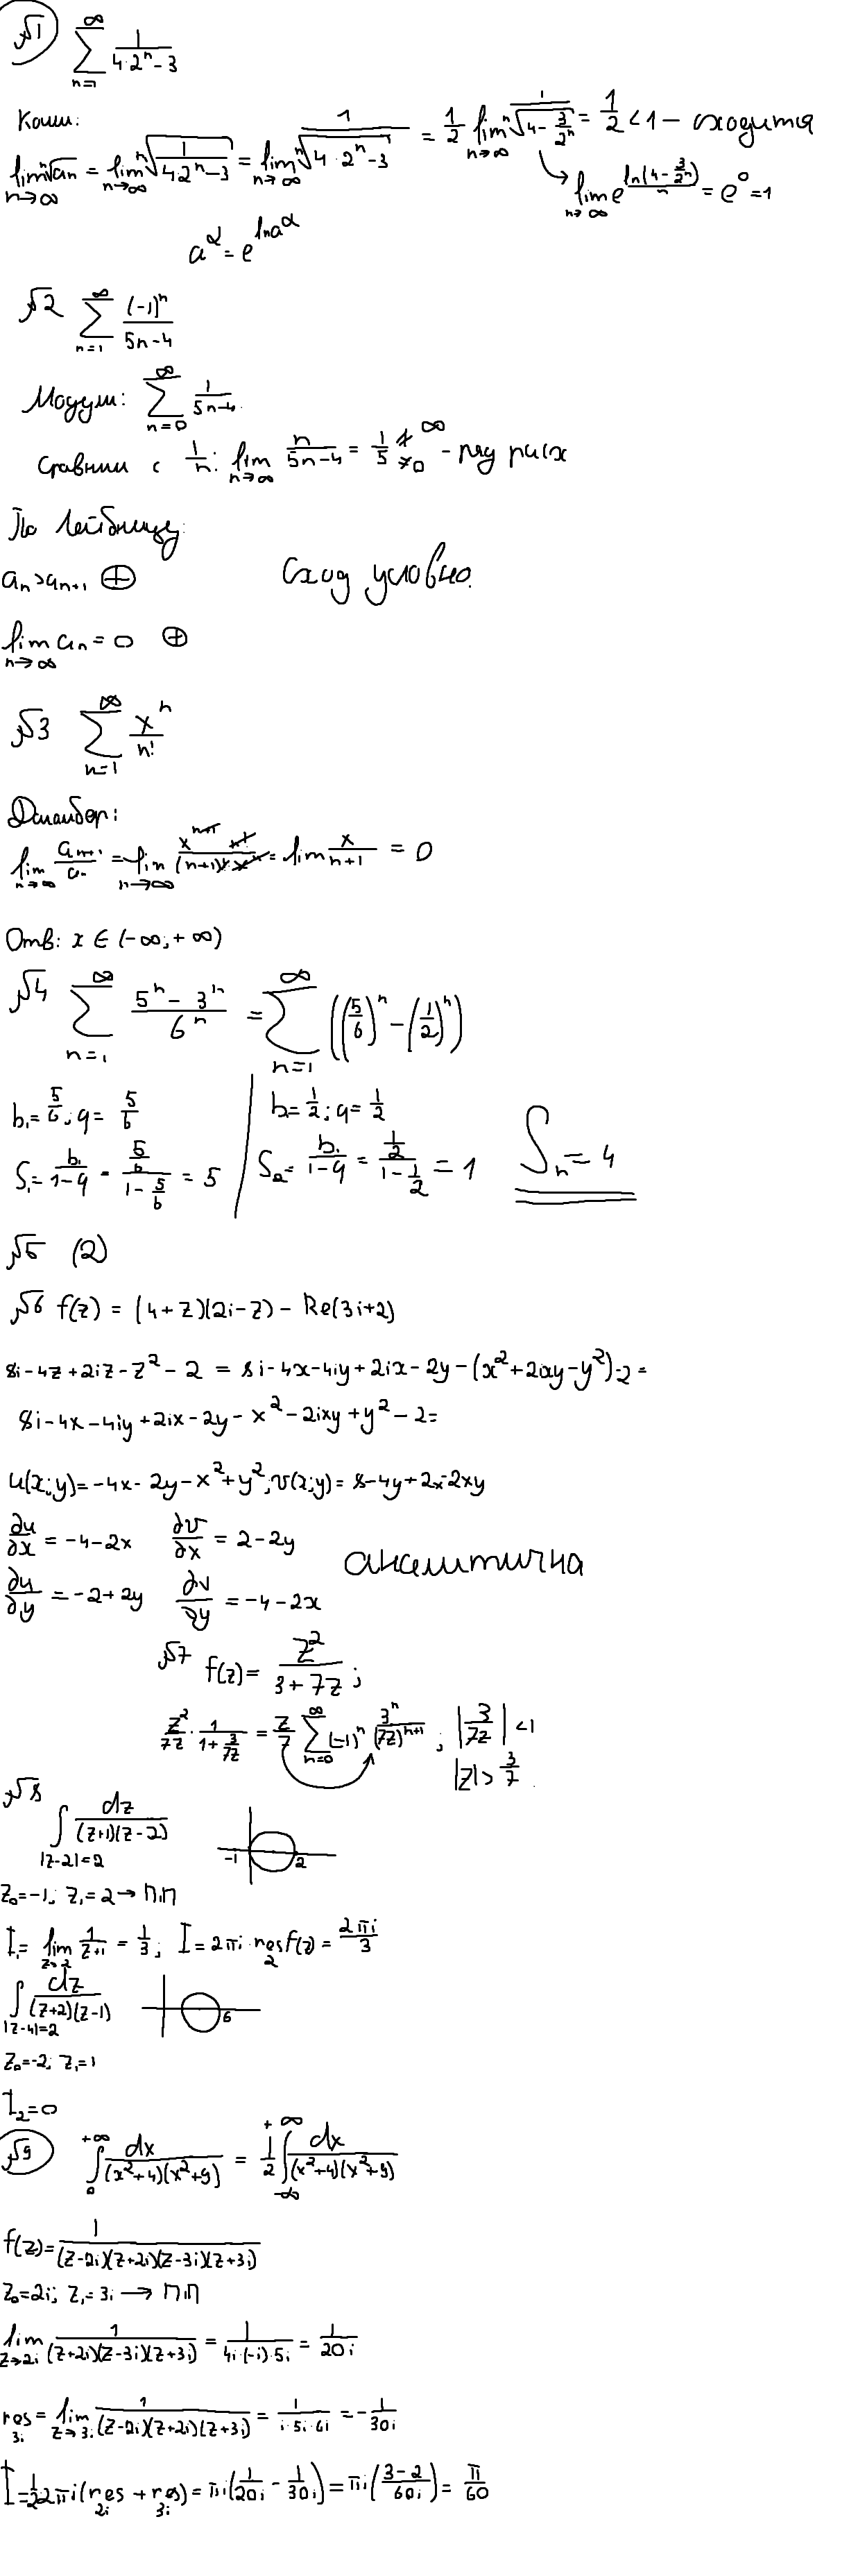 №1 ∑_{n=1}^{∞} 1/(4·2^n−3)
Коши:
lim_{n→∞} ⁿ√a_n = lim_{n→∞} ⁿ√(1/(4·2^n−3)) = lim_{n→∞} 1/ⁿ√(4·2^n−3) = 1/2 lim_{n→∞} 1/ⁿ√(4−3/2^n) = 1/2 < 1 − сходится
lim_{n→∞} e^{ln(4−3/2^n)/n} = e^0 = 1
a^α = e^{ln a^α}
№2 ∑_{n=1}^{∞} (-1)^n/(5n−4)
Модули: ∑_{n=0}^{∞} 1/(5n−4)
Сравним с 1/n: lim_{n→∞} n/(5n−4) = 1/5 ≠∞ ≠0 − ряд расх
По Лейбницу:
a_n > a_{n+1} ⊕ Сход условно.
lim_{n→∞} a_n = 0 ⊕
№3 ∑_{n=1}^{∞} x^n/n!
Даламбер:
lim_{n→∞} a_{n+1}/a_n = lim_{n→∞} x^{n+1} n!/((n+1)! x^n) = lim x/(n+1) = 0
Отв: x ∈ (-∞; +∞)
№4 ∑_{n=1}^{∞} (5^n − 3^n)/6^n = ∑_{n=1}^{∞} ((5/6)^n − (1/2)^n)
b₁ = 5/6; q = 5/6 | b₁ = 1/2; q = 1/2
S₁ = b₁/(1−q) = (5/6)/(1−5/6) = 5 | S₂ = b₁/(1−q) = (1/2)/(1−1/2) = 1 S_n = 4
№5 (2)
№6 f(z) = (4+z)(2i−z) − Re(3i+2)
8i−4z+2iz−z²−2 = 8i−4x−4iy+2ix−2y−(x²+2ixy−y²)−2=
8i−4x−4iy+2ix−2y−x²−2ixy+y²−2=
u(x;y)=−4x−2y−x²+y²; v(x;y)=8−4y+2x−2xy
∂u/∂x = −4−2x ∂v/∂x = 2−2y аналитична
∂u/∂y = −2+2y ∂v/∂y = −4−2x
№7 f(z) = z²/(3+7z);
z²/7z · 1/(1+3/7z) = z/7 ∑_{n=0}^{∞} (−1)^n 3^n/(7z)^{n+1}; |3/7z| < 1
|z| > 3/7.
№8 ∫_{|z−2|=2} dz/((z+1)(z−2)) -1 2
z₀=−1; z₁=2 → п.п
I₁ = lim_{z→2} 1/(z+1) = 1/3; I = 2πi·res_2 f(z) = 2πi/3
∫_{|z−4|=2} dz/((z+2)(z−1)) 6
z₀=−2; z₁=1
I₂=0
№9 ∫_0^{+∞} dx/((x²+4)(x²+9)) = 1/2 ∫_{−∞}^{+∞} dx/((x²+4)(x²+9))
f(z) = 1/((z−2i)(z+2i)(z−3i)(z+3i))
z₀=2i; z₁=3i → п.п
lim_{z→2i} 1/((z+2i)(z−3i)(z+3i)) = 1/(4i·(−i)·5i) = 1/20i
res_{3i} = lim_{z→3i} 1/((z−2i)(z+2i)(z+3i)) = 1/(i·5i·6i) = −1/30i
I = 1/2 2πi(res_{2i} + res_{3i}) = πi(1/20i − 1/30i) = πi((3−2)/60i) = π/60